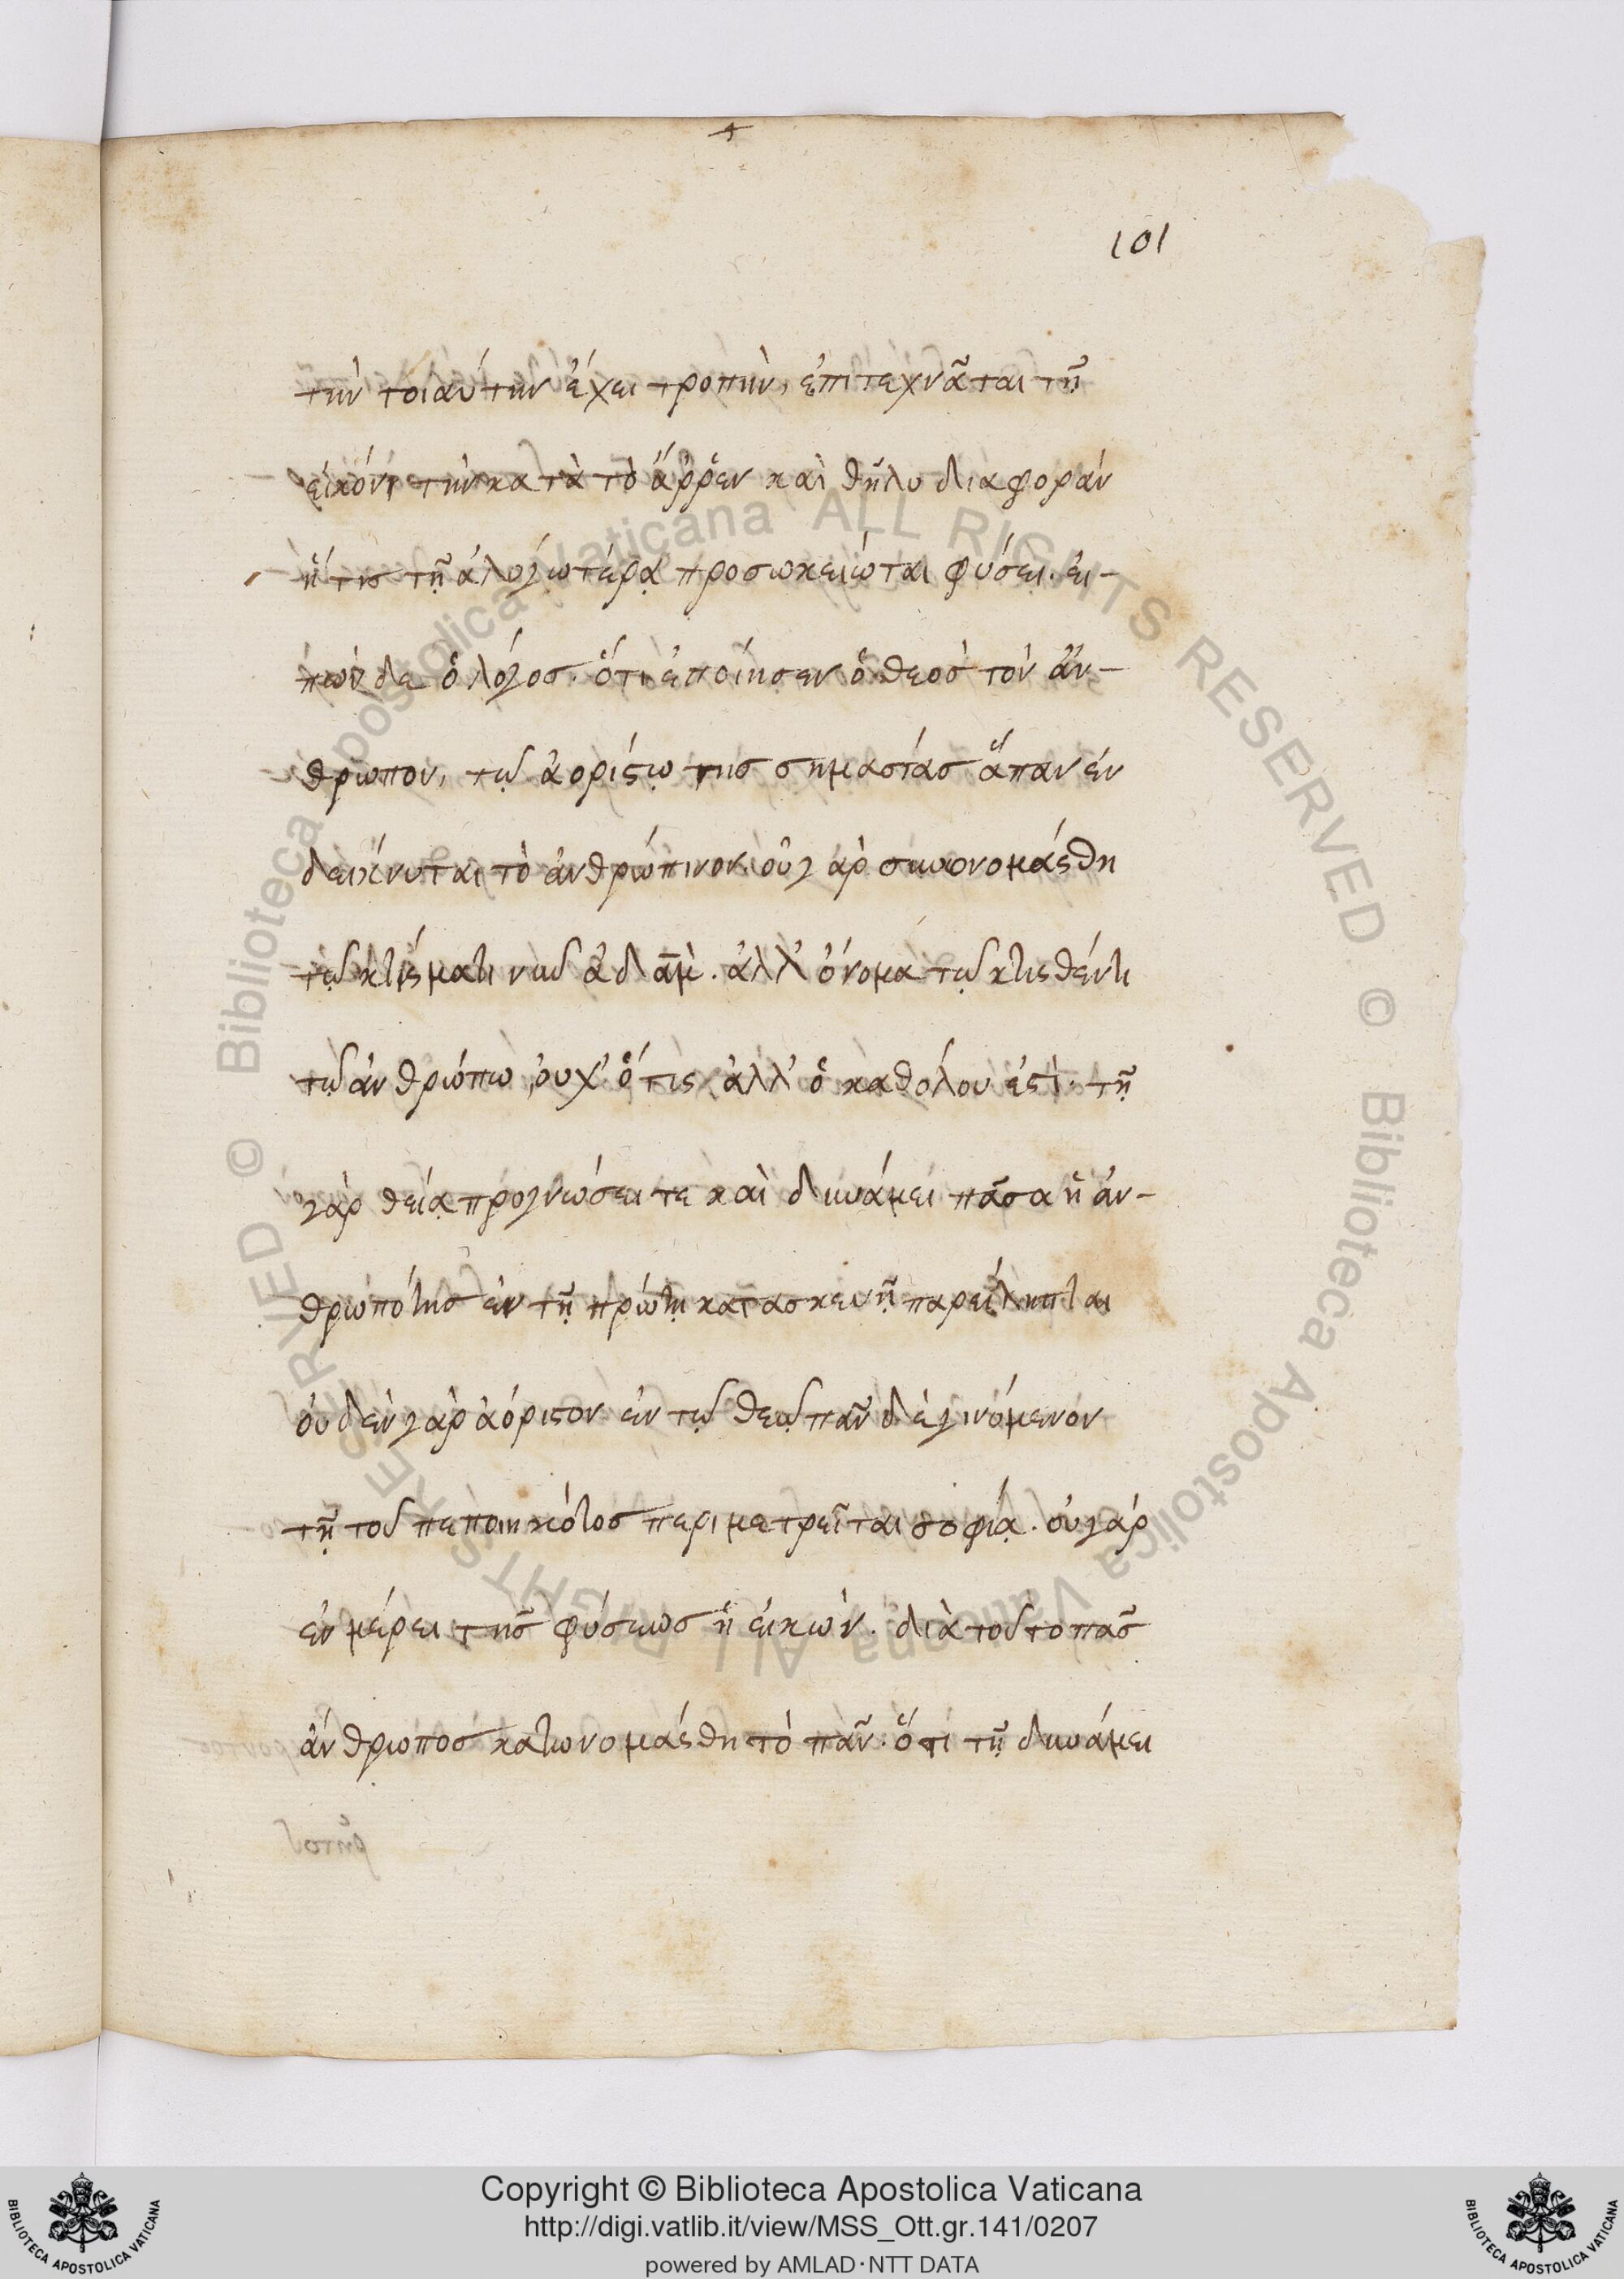 101
τὴν τοιαύτην ἔχει τροπὴν, ἐπιτεχνᾶται τῇ
εἰκόνι τὴν κατὰ τὸ ἄῤῥεν καὶ θῆλυ διαφοράν
ἥτις τῇ ἀλογωτέρᾳ προσωκείωται φύσει. εἰ-
πὼν δε ὁ λόγος. ὅτι ἐποίησεν ὁ θεὸσ τὸν ἄν-
θρωπον, τῷ ἀορίστῳ τῆσ σημασίασ ἅπαν ἐν
δείκνυται τὸ ἀνθρώπινον. οὐ γὰρ συνωνομάσθη
τῷ κτίσματι νῦν ἀδάμ. ἀλλ' ὄνομα τῷ κτισθέντι
τῷ ἀνθρώπω, οὐχ' ὅ τὶς ἀλλ' ὁ καθόλου ἐστὶ. τῇ
γὰρ θείᾳ προγνώσει τε καὶ δυνάμει πᾶσα ἡ ἀν-
θρωπότησ ἐν τῇ πρώτῃ κατασκευῇ παρείληπται
οὐδὲν γὰρ ἀόριστον ἐν τῷ θεῷ πᾶν δὲ γινόμενον
τῇ τοῦ πεποιηκότοσ περιμετρεῖται σοφίᾳ. οὐ γάρ
ἐν μέρει τῆσ φύσεωσ ἡ εἰκὼν. διὰ τοῦτο πᾶσ
ἄνθρωποσ κατωνομάσθη τὸ πᾶν. ὅτι τῇ δυνάμει
Copyright © Biblioteca Apostolica Vaticana
http://digi.vatlib.it/view/MSS_Ott.gr.141/0207
powered by AMLAD·NTT DATA
BIBLIOTECA APOSTOLICA VATICANA
BIBLIOTECA APOSTOLICA VATICANA
© Biblioteca Apostolica Vaticana ALL RIGHTS RESERVED
© Biblioteca Apostolica Vaticana ALL RIGHTS RESERVED